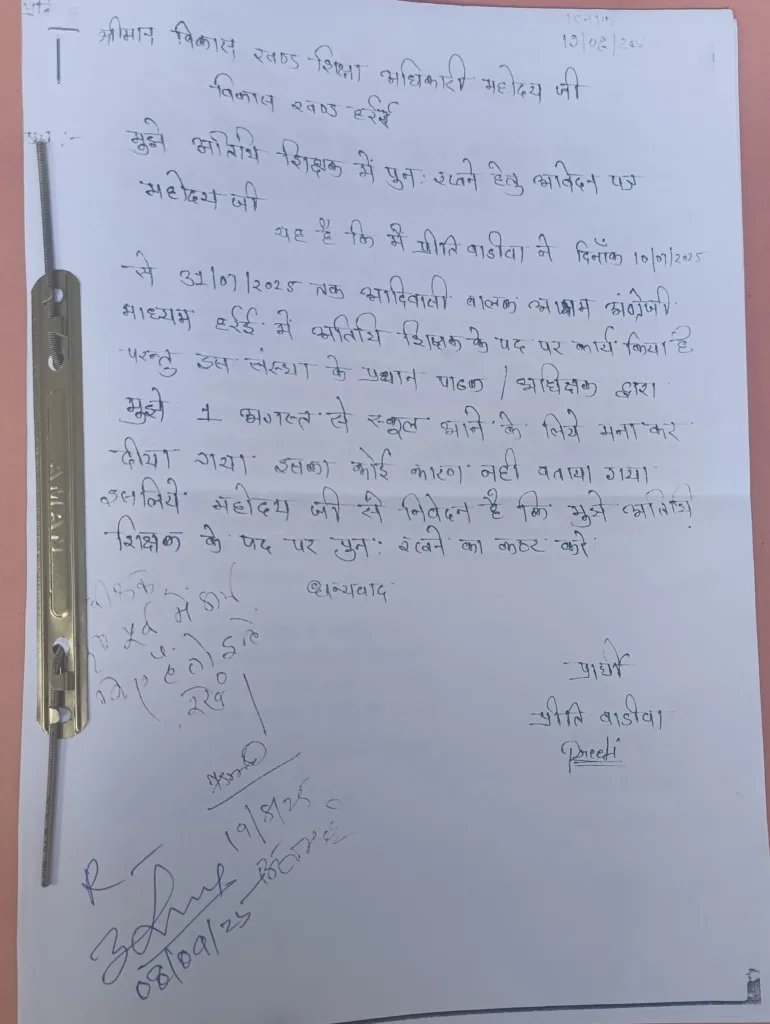 प्रति
दिनांक
19/08/20
श्रीमान विकास खण्ड शिक्षा अधिकारी महोदय जी
विकास खण्ड हर्रई
मुझे अतिथि शिक्षक में पुनः रखने हेतु आवेदन पत्र
महोदय जी
यह है कि मैं प्रीति वाडीवा ने दिनाँक 10/07/2025
से 31/07/2025 तक आदिवासी बालक आश्रम अंग्रेजी
माध्यम हर्रई में अतिथि शिक्षक के पद पर कार्य किया है
परन्तु इस संस्था के प्रधान पाठक / अधिक्षक द्वारा
मुझे 1 अगस्त से स्कूल आने के लिये मना कर
दीया गया इसका कोई कारण नही बताया गया
इसलिये महोदय जी से निवेदन है कि मुझे अतिथि
शिक्षक के पद पर पुनः रखने का कष्ट करें
धन्यवाद
प्रार्थी
प्रीति वाडीवा
Preeti
पूर्व में
रखें
19/8/25
R -
08/09/25
AMAN